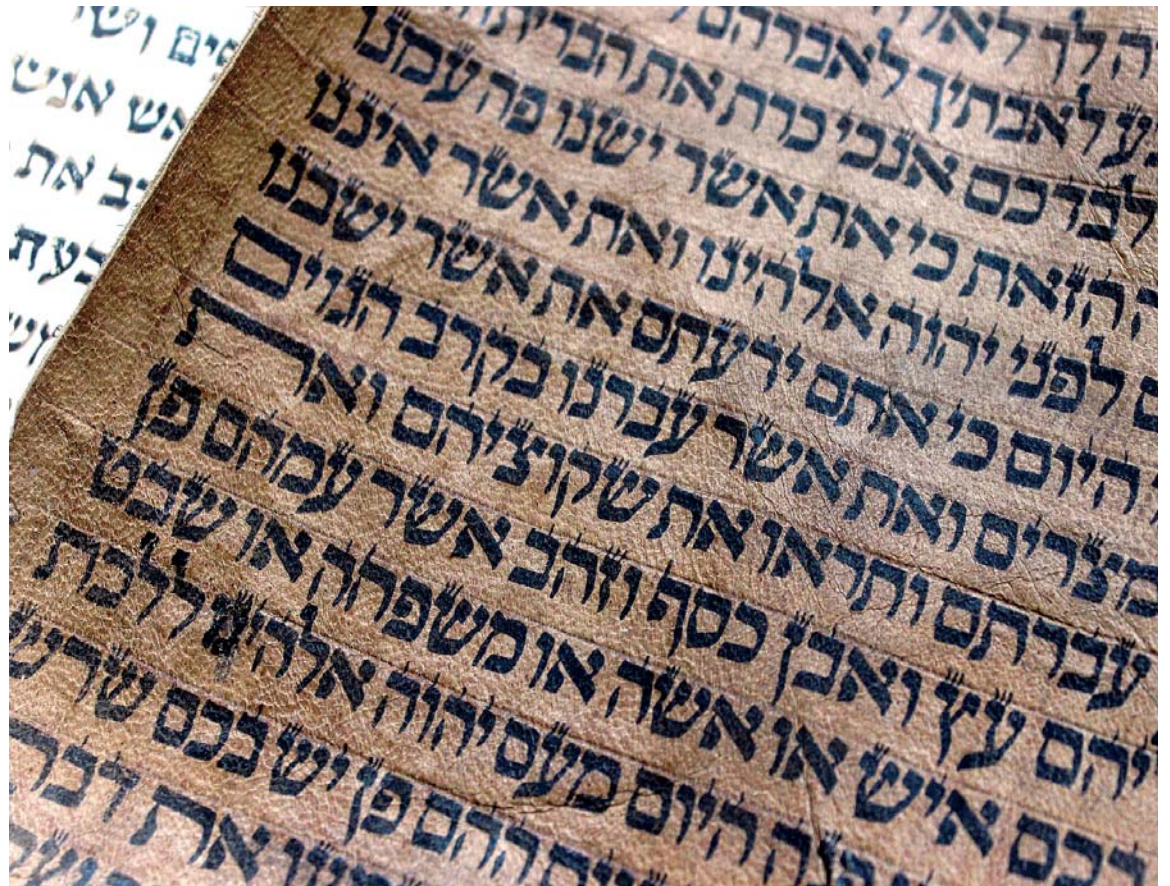 לך
לאבתיך לאברהם
לבדכם אנכי כרת את הברית
הזאת כי את אשר ישנו פה עמנו
לפני יהוה אלהינו ואת אשר איננו
היום כי אתם ידעתם את אשר ישבנו
מצרים ואת אשר עברנו בקרב הגוים
עברתם ותראו את שקוציהם ואת
יהם עץ ואבן כסף וזהב אשר עמהם פן
בכם איש או אשה או משפחה או שבט
היום מעם יהוה אלהינו ללכת
ההם פן יש בכם שרש
את דברי
את